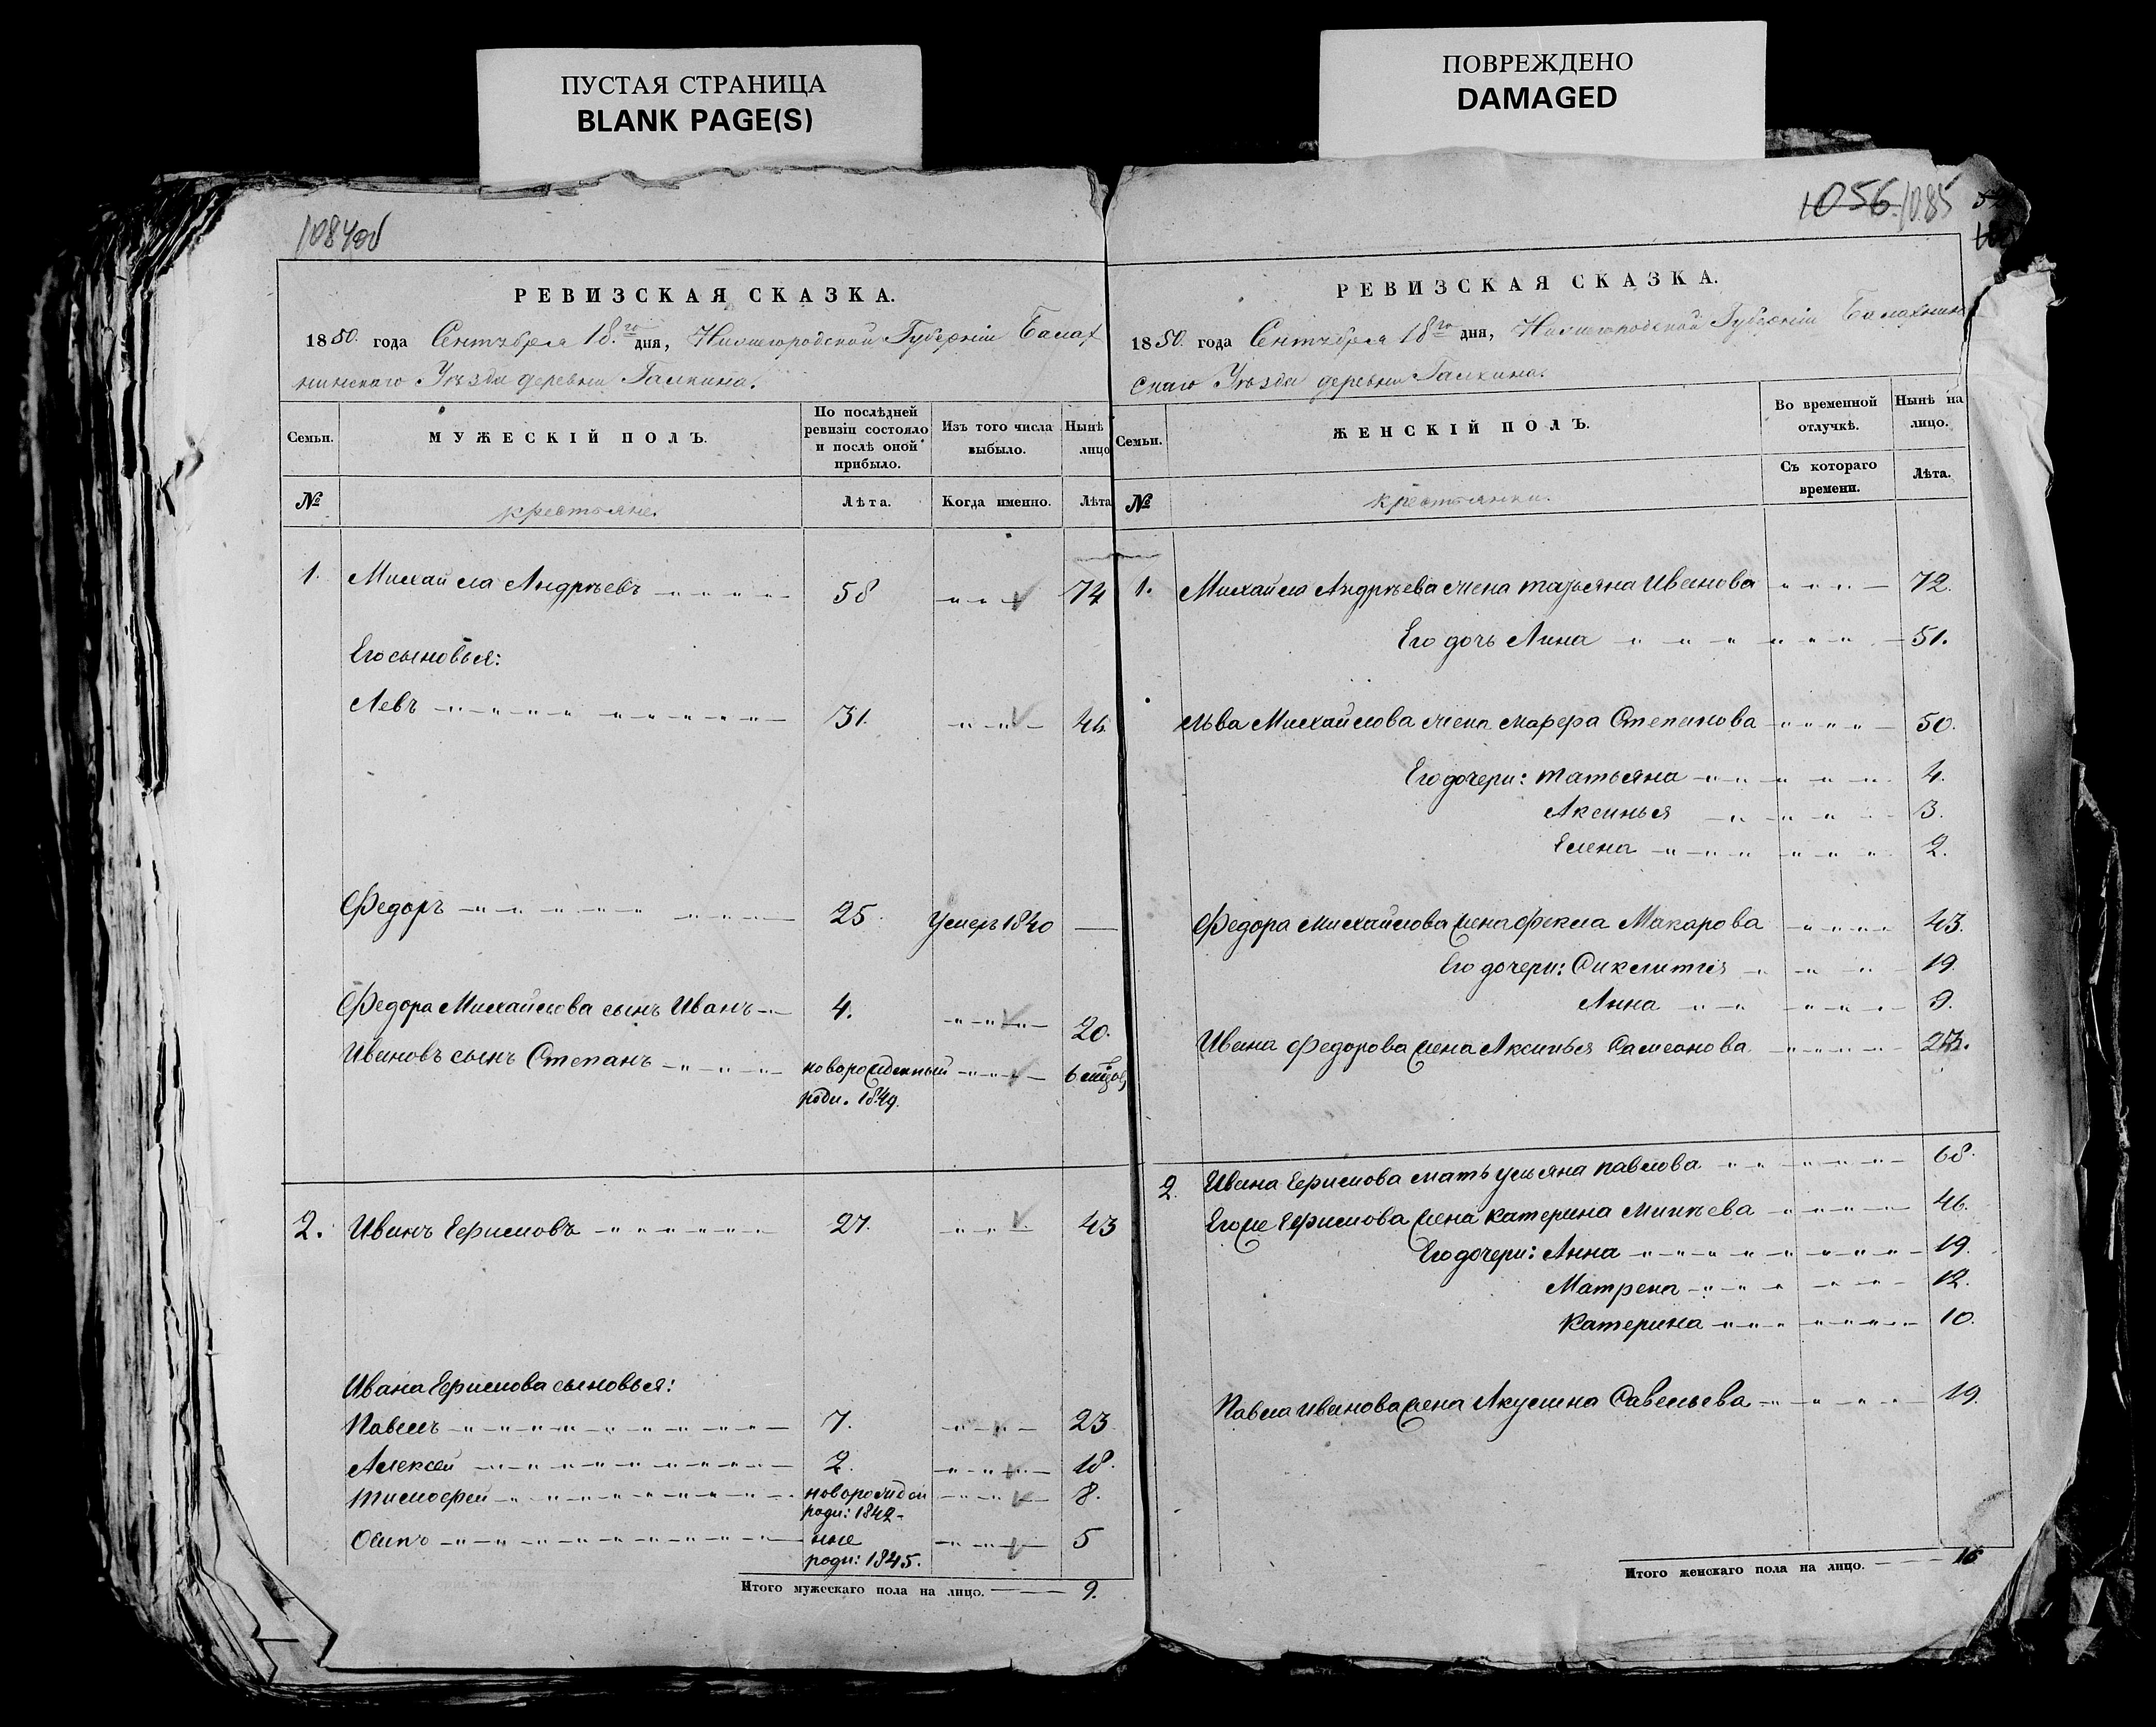 ПУСТАЯ СТРАНИЦА
BLANK PAGE(S)
ПОВРЕЖДЕНО
DAMAGED
1084об
РЕВИЗСКАЯ СКАЗКА.
1850. года Сентября 18.го дня, Нижегородской Губерніи Балах
нинскаго Уѣзда деревни Галкина.
Семьи.
МУЖЕСКІЙ ПОЛЪ.
По послѣдней ревизіи состояло и послѣ оной прибыло.
Изъ того числа выбыло.
Нынѣ лицо
№
крестьяне.
Лѣта.
Когда именно.
Лѣта
1. Михайла Андреевъ 58 74
Его сыновья:
Левъ 31. 46.
Федоръ 25. Умеръ 1840 —
Федора Михайлова сынъ Иванъ 4. 20.
Ивановъ сынъ Степанъ новорожденный 6 мцов
роди. 1849.
2. Иванъ Ефимовъ 27. 43
Ивана Ефимова сыновья:
Павелъ 7. 23
Алексей 2. 18.
Тимофей новорожден 8.
роди: 1842
Осипъ ные 5
роди: 1845.
Итого мужескаго пола на лицо. 9.
1056. 1085
РЕВИЗСКАЯ СКАЗКА.
1850. года Сентября 18го дня, Нижегородской Губерніи Балахнин
скаго Уѣзда деревни Галкина.
Семьи.
ЖЕНСКІЙ ПОЛЪ.
Во временной отлучкѣ.
Нынѣ на лицо.
Съ котораго времени.
Лѣта.
№
крестьянки.
1. Михайла Андреева жена татьяна Иванова 72.
Его дочь Анна 51.
Льва Михайлова жена марфа Степанова 50.
Его дочери: татьяна 4.
Аксинья 3.
Елена 2.
Федора Михайлова жена фекла Макарова 43.
Его дочери: 19.
Анна 9.
Ивана федорова жена Аксинья Самсонова
2. Ивана Ефимова мать ульяна павлова 68.
Егоже Ефимова жена катерина 46.
Его дочери: Анна 19.
Матрена 12.
Катерина 10.
Павла иванова жена Акулина Савельева 19.
Итого женскаго пола на лицо. 16